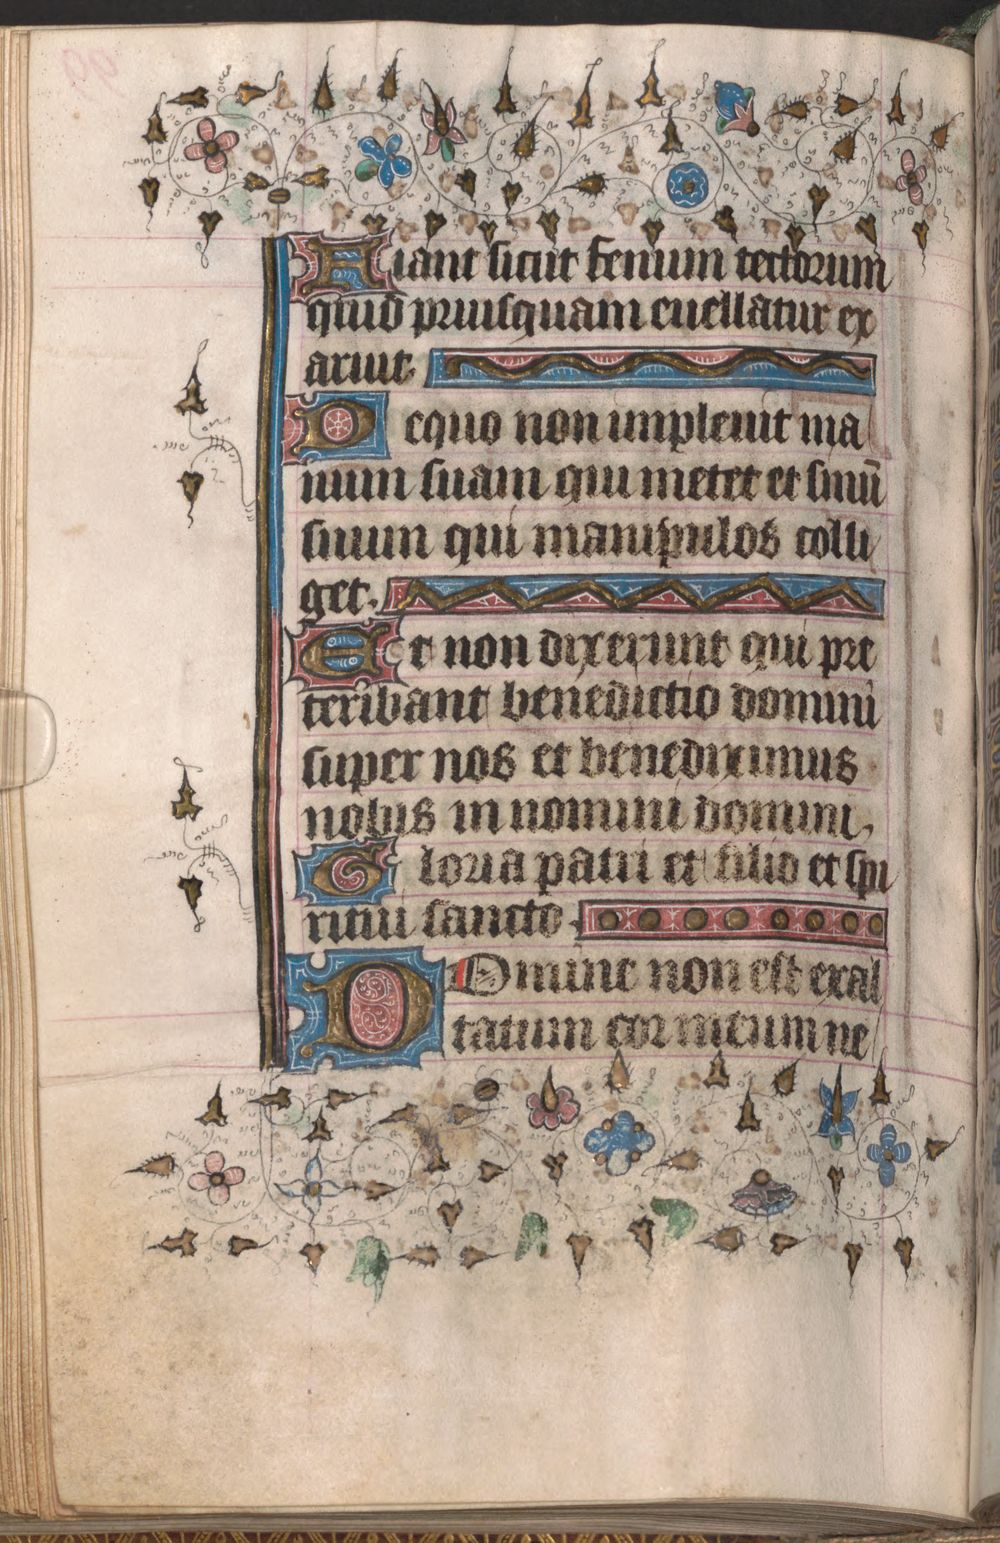 Fiant sicut fenum tectorum
quod priusquam euellatur ex
aruit.
De quo non impleuit ma
num suam qui metet et sinū
suum qui manipulos colli
get.
Et non dixerunt qui pre
teribant benedictio domini
super nos et benediximus
nobis in nomini domini.
Gloria patri et filio et spi
ritui sancto.
Domine non est exal
tatum cor meum ne